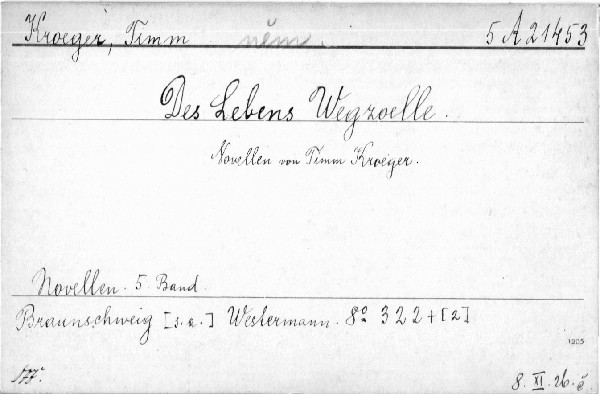 Kroeger, Timm něm. 5 A 21453
Des Lebens Wegzoelle.
Novellen von Timm Kroeger.
Novellen. 5. Band.
Braunschweig [s.a.] Westermann. 8º 322+[2]
8. XI. 26.